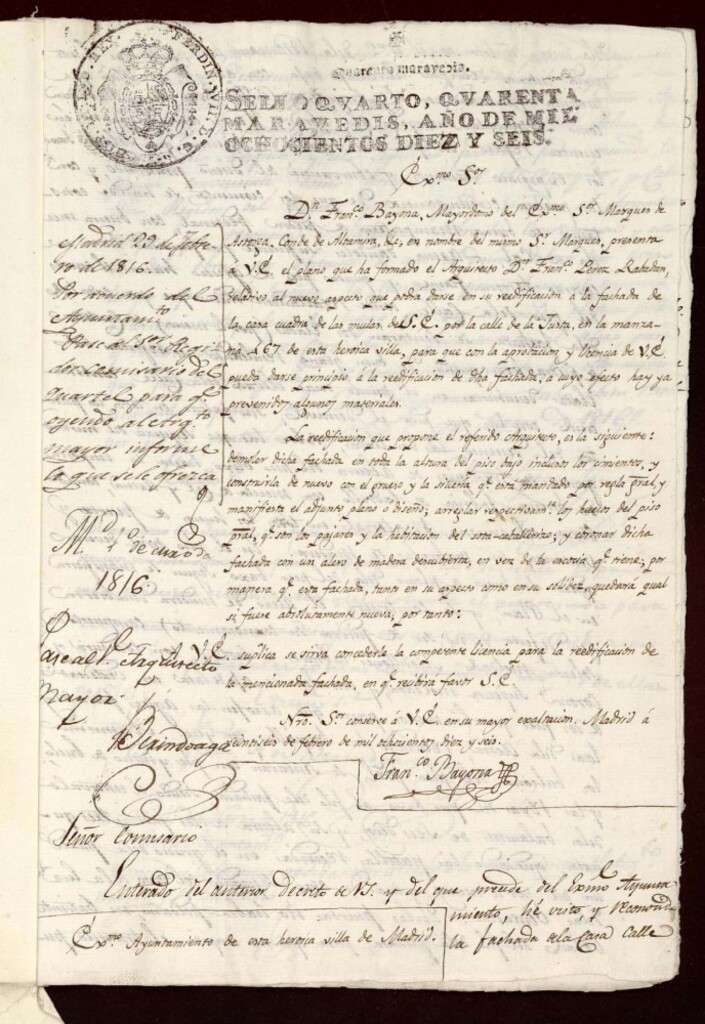 FERDIN. VII. D. G. HISP. ET IND. REX
Quarenta maravedis.
SELLO QVARTO, QVARENTA
MARAVEDIS, AÑO DE MIL
OCHOCIENTOS DIEZ Y SEIS.
Exmo Sor
Dn Franco Bayona, Mayordomo del Exmo Sor Marques de
Astorga, Conde de Altamira, &c, en nombre del mismo Sr Marques, presenta
á V.E. el plano que ha formado el Arquitecto Dn Franco Perez Rabadan,
relativo al nuevo aspecto que podrá darse en su reedificación á la fachada de
la casa cuadra de las mulas de S.E. por la calle de la Justa, en la manza-
na 467 de esta heroica villa, para que con la aprobacion y licencia de V.E.
pueda darse principio á la reedificacion de dha fachada, á cuyo efecto hay ya
prevenidos algunos materiales.
La reedificación que propone el referido Arquitecto, es la siguiente:
demoler dicha fachada en toda la altura del piso bajo inclusos los cimientos, y
construirla de nuevo con el grueso y la sillería qe está mandado por regla gral, y
manifiesta el adjunto plano ó diseño; arreglar respectivamte los huecos del piso
pral, qe son los pajares y la habitacion del sota-caballerizo; y coronar dicha
fachada con un alero de madera descubierta, en vez de la que tiene; por
manera qe esta fachada, tanto en su aspecto como en su solidez, quedará qual
si fuere absolutamente nueva; por tanto:
A V.E. suplica se sirva concederle la competente licencia para la reedificacion de
la mencionada fachada, en qe recibirá favor S.E.
Nro. Sor conserve á V.E. en su mayor exaltacion. Madrid á
veintiseis de febrero de mil ochocientos diez y seis.
Franco Bayona
Madrid 29 de febre-
ro de 1816.
Por acuerdo del
Ayuntamto
Pase al Sor Regi-
dor comisario del
Quartel para qe
oyendo al Arqto
mayor informe
lo que se le ofrezca
Md 1o de marzo de
1816.
Pase al Arquitecto
Mayor.
Señor Comisario
Enterado del anterior Decreto de VS. y del que precede del Exmo Ayunta
miento, hé visto, y reconocido
la fachada de la Casa Calle
Exmo Ayuntamiento de esta heroica villa de Madrid.